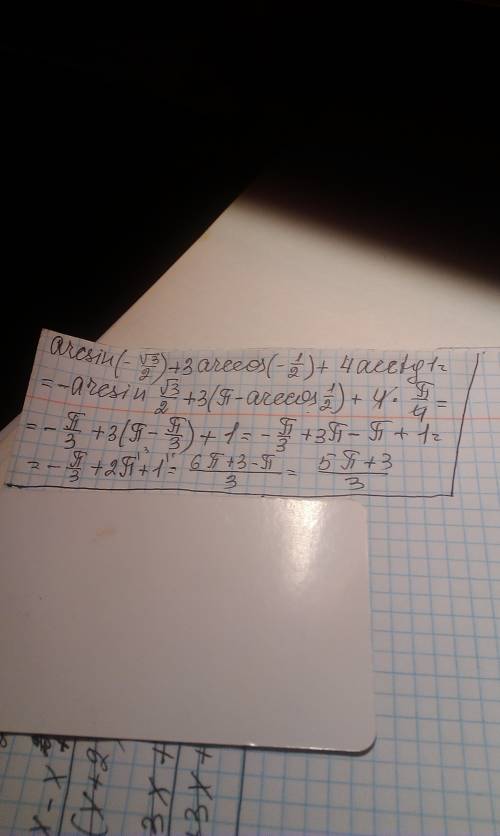 arcsin(-√3/2)+3arccos(-1/2)+ 4arctg1=
=-arcsin √3/2+3(π-arccos 1/2)+4·π/4=
=-π/3+3(π-π/3)+1=-π/3+3π-π+1=
=-π/3+2π+1=(6π+3-π)/3=(5π+3)/3